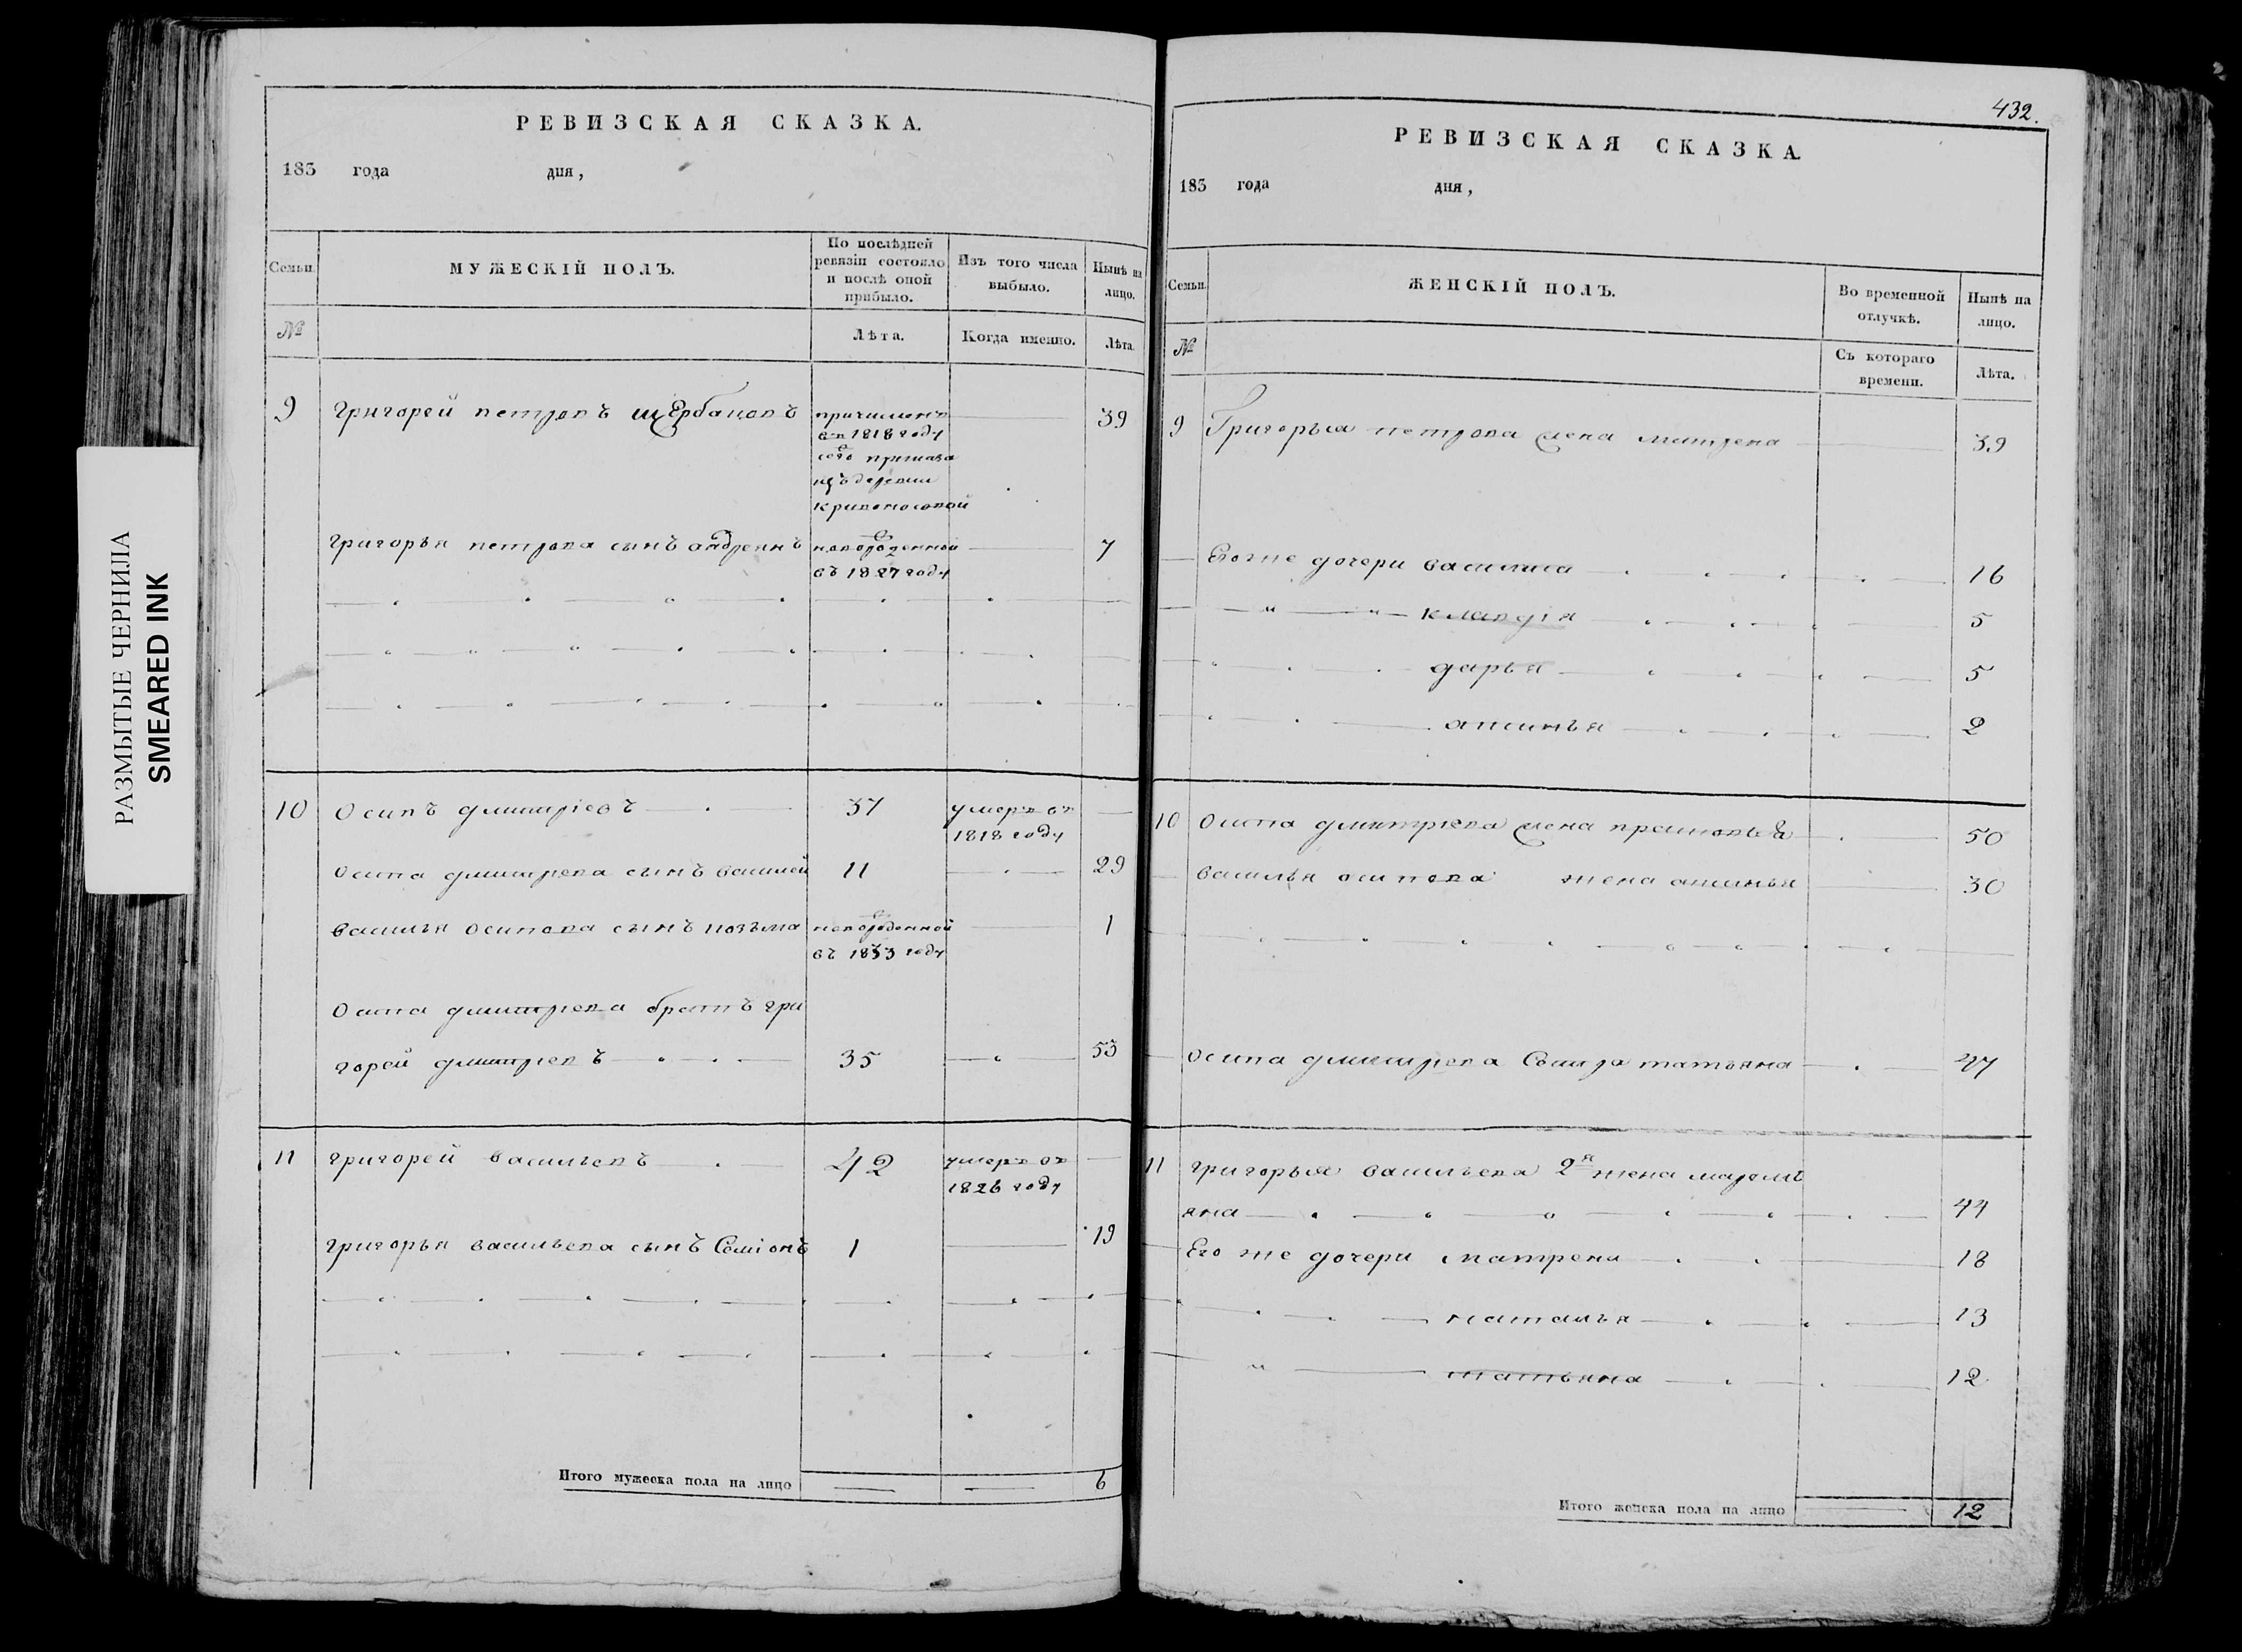 РАЗМЫТЫЕ ЧЕРНИЛА
SMEARED INK
РЕВИЗСКАЯ СКАЗКА.
183 года дня,
Семьи.
МУЖЕСКІЙ ПОЛЪ.
По послѣдней ревизіи состояло и послѣ оной прибыло.
Изъ того числа выбыло.
Нынѣ на лицо.
№
Лѣта.
Когда именно.
Лѣта.
9 григорей петровъ щербаковъ причисленъ 39
въ 1818 году
сего приказа
изъ деревни
кривоносовой
григорья петрова сынъ андреянъ новорожденной 7
въ 1827 году
10 Осипъ дмитріевъ 37 умеръ въ
1818 году
осипа дмитріева сынъ василей 11 29
василья осипова сынъ козьма новорожденной 1
въ 1833 году
осипа дмитріева братъ гри
горей дмитріевъ 35 53
11 григорей васильевъ 42 умеръ въ
1826 году
григорья васильева сынъ Семіонъ 1 19
Итого мужеска пола на лицо 6
432.
РЕВИЗСКАЯ СКАЗКА.
183 года дня,
Семьи.
ЖЕНСКІЙ ПОЛЪ.
Во временной отлучкѣ.
Нынѣ на лицо.
№
Съ котораго времени.
Лѣта.
9 Григорья петрова жена матрена 39
Его же дочери василиса 16
" " клавдія 5
дарья 5
аксинья 2
10 осипа дмитріева жена прасковья 50
василья осипова жена аксинья 30
осипа дмитріева татьяна 47
11 григорья васильева 2я жена
яна 44
Его же дочери матрена 18
наталья 13
" татьяна 12
Итого женска пола на лицо 12